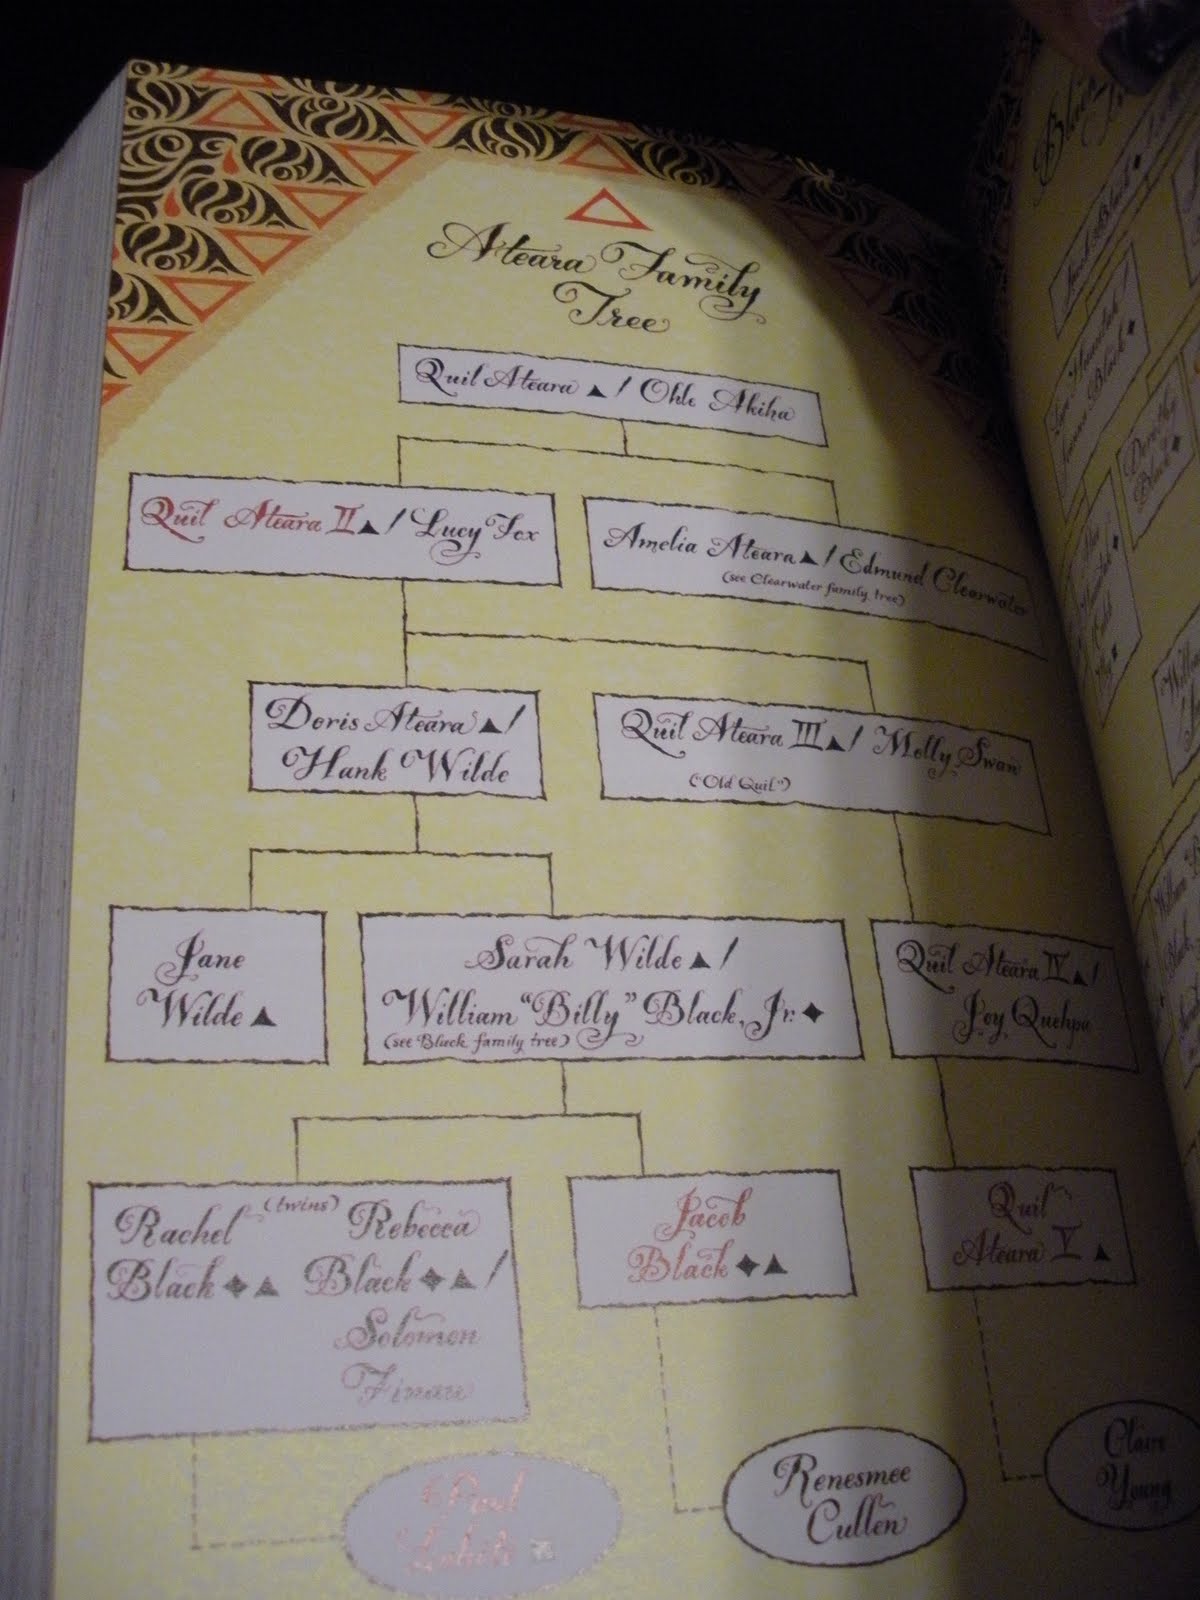 Ateara Family
Tree
Quil Ateara ▲/ Ohle Akiha
Quil Ateara II▲/ Lucy Fox
Amelia Ateara▲/ Edmund Clearwater
(see Clearwater family tree)
Doris Ateara ▲/
Hank Wilde
Quil Ateara III▲/ Molly Swan
("Old Quil")
Jane
Wilde ▲
Sarah Wilde ▲/
William "Billy" Black, Jr. ◆
(see Black family tree)
Quil Ateara IV▲/
Joy Quehpa
Rachel (twins) Rebecca
Black ◆▲ Black ◆▲/
Solomon
Finau
Jacob
Black ◆▲
Quil
Ateara V ▲
Paul
Lahote
Renesmee
Cullen
Claire
Young
Dorothy
Black